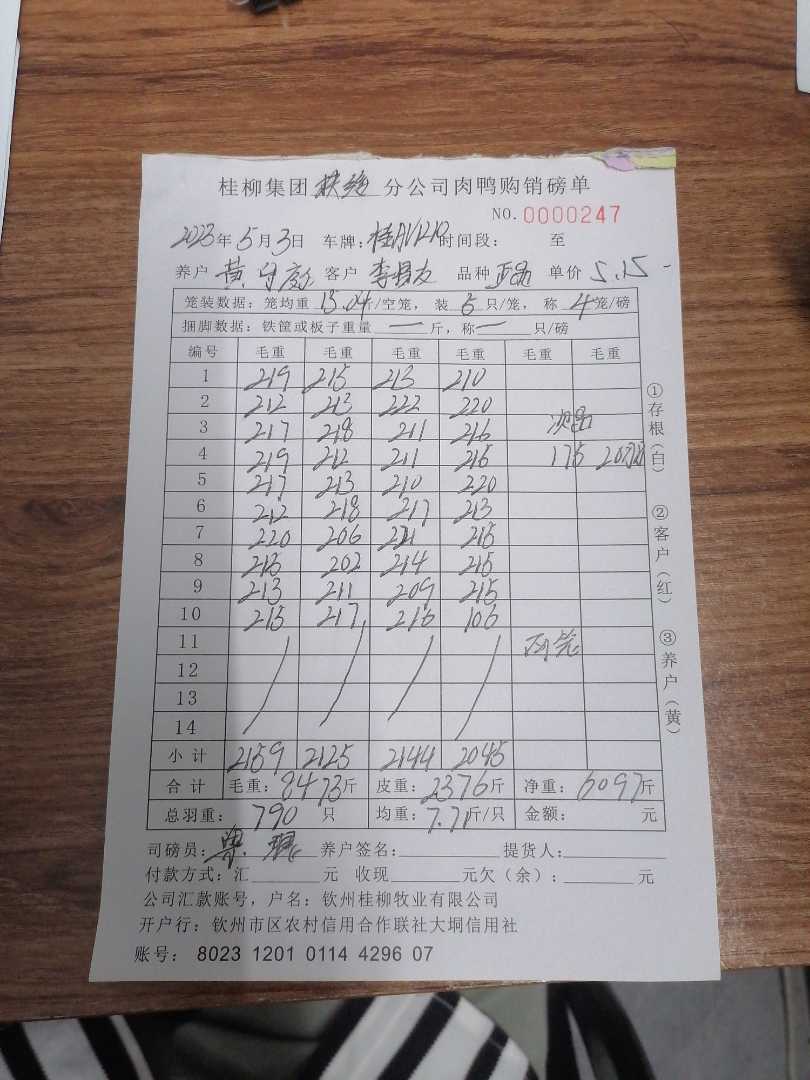 桂柳集团扶绥分公司肉鸭购销磅单
NO. 0000247
2023年5月3日 车牌: 时间段: 至
养户 黄守 客户 李 友 品种 正品 单价 5.15
笼装数据: 笼均重 15.04斤/空笼, 装 5 只/笼, 称 4 笼/磅
捆脚数据: 铁筐或板子重量 一 斤, 称 一 只/磅
编号 毛重 毛重 毛重 毛重 毛重 毛重
1 219 215 213 210
2 212 213 222 220
3 217 218 211 216 次品
4 219 212 211 215 175
5 217 213 210 220
6 212 218 217 213
7 220 206 221 215
8 215 202 214 215
9 213 211 209 215
10 215 217 216 106
11 两笼
12
13
14
小计 2159 2125 2144 2045
合计 毛重: 8473斤 皮重: 2376斤 净重: 6097斤
总羽重: 790 只 均重: 7.71斤/只 金额: 元
司磅员: 养户签名: 提货人:
付款方式: 汇 元 收现 元欠(余): 元
公司汇款账号, 户名: 钦州桂柳牧业有限公司
开户行: 钦州市区农村信用合作联社大垌信用社
账号: 8023 1201 0114 4296 07
①存根(白) ②客户(红) ③养户(黄)